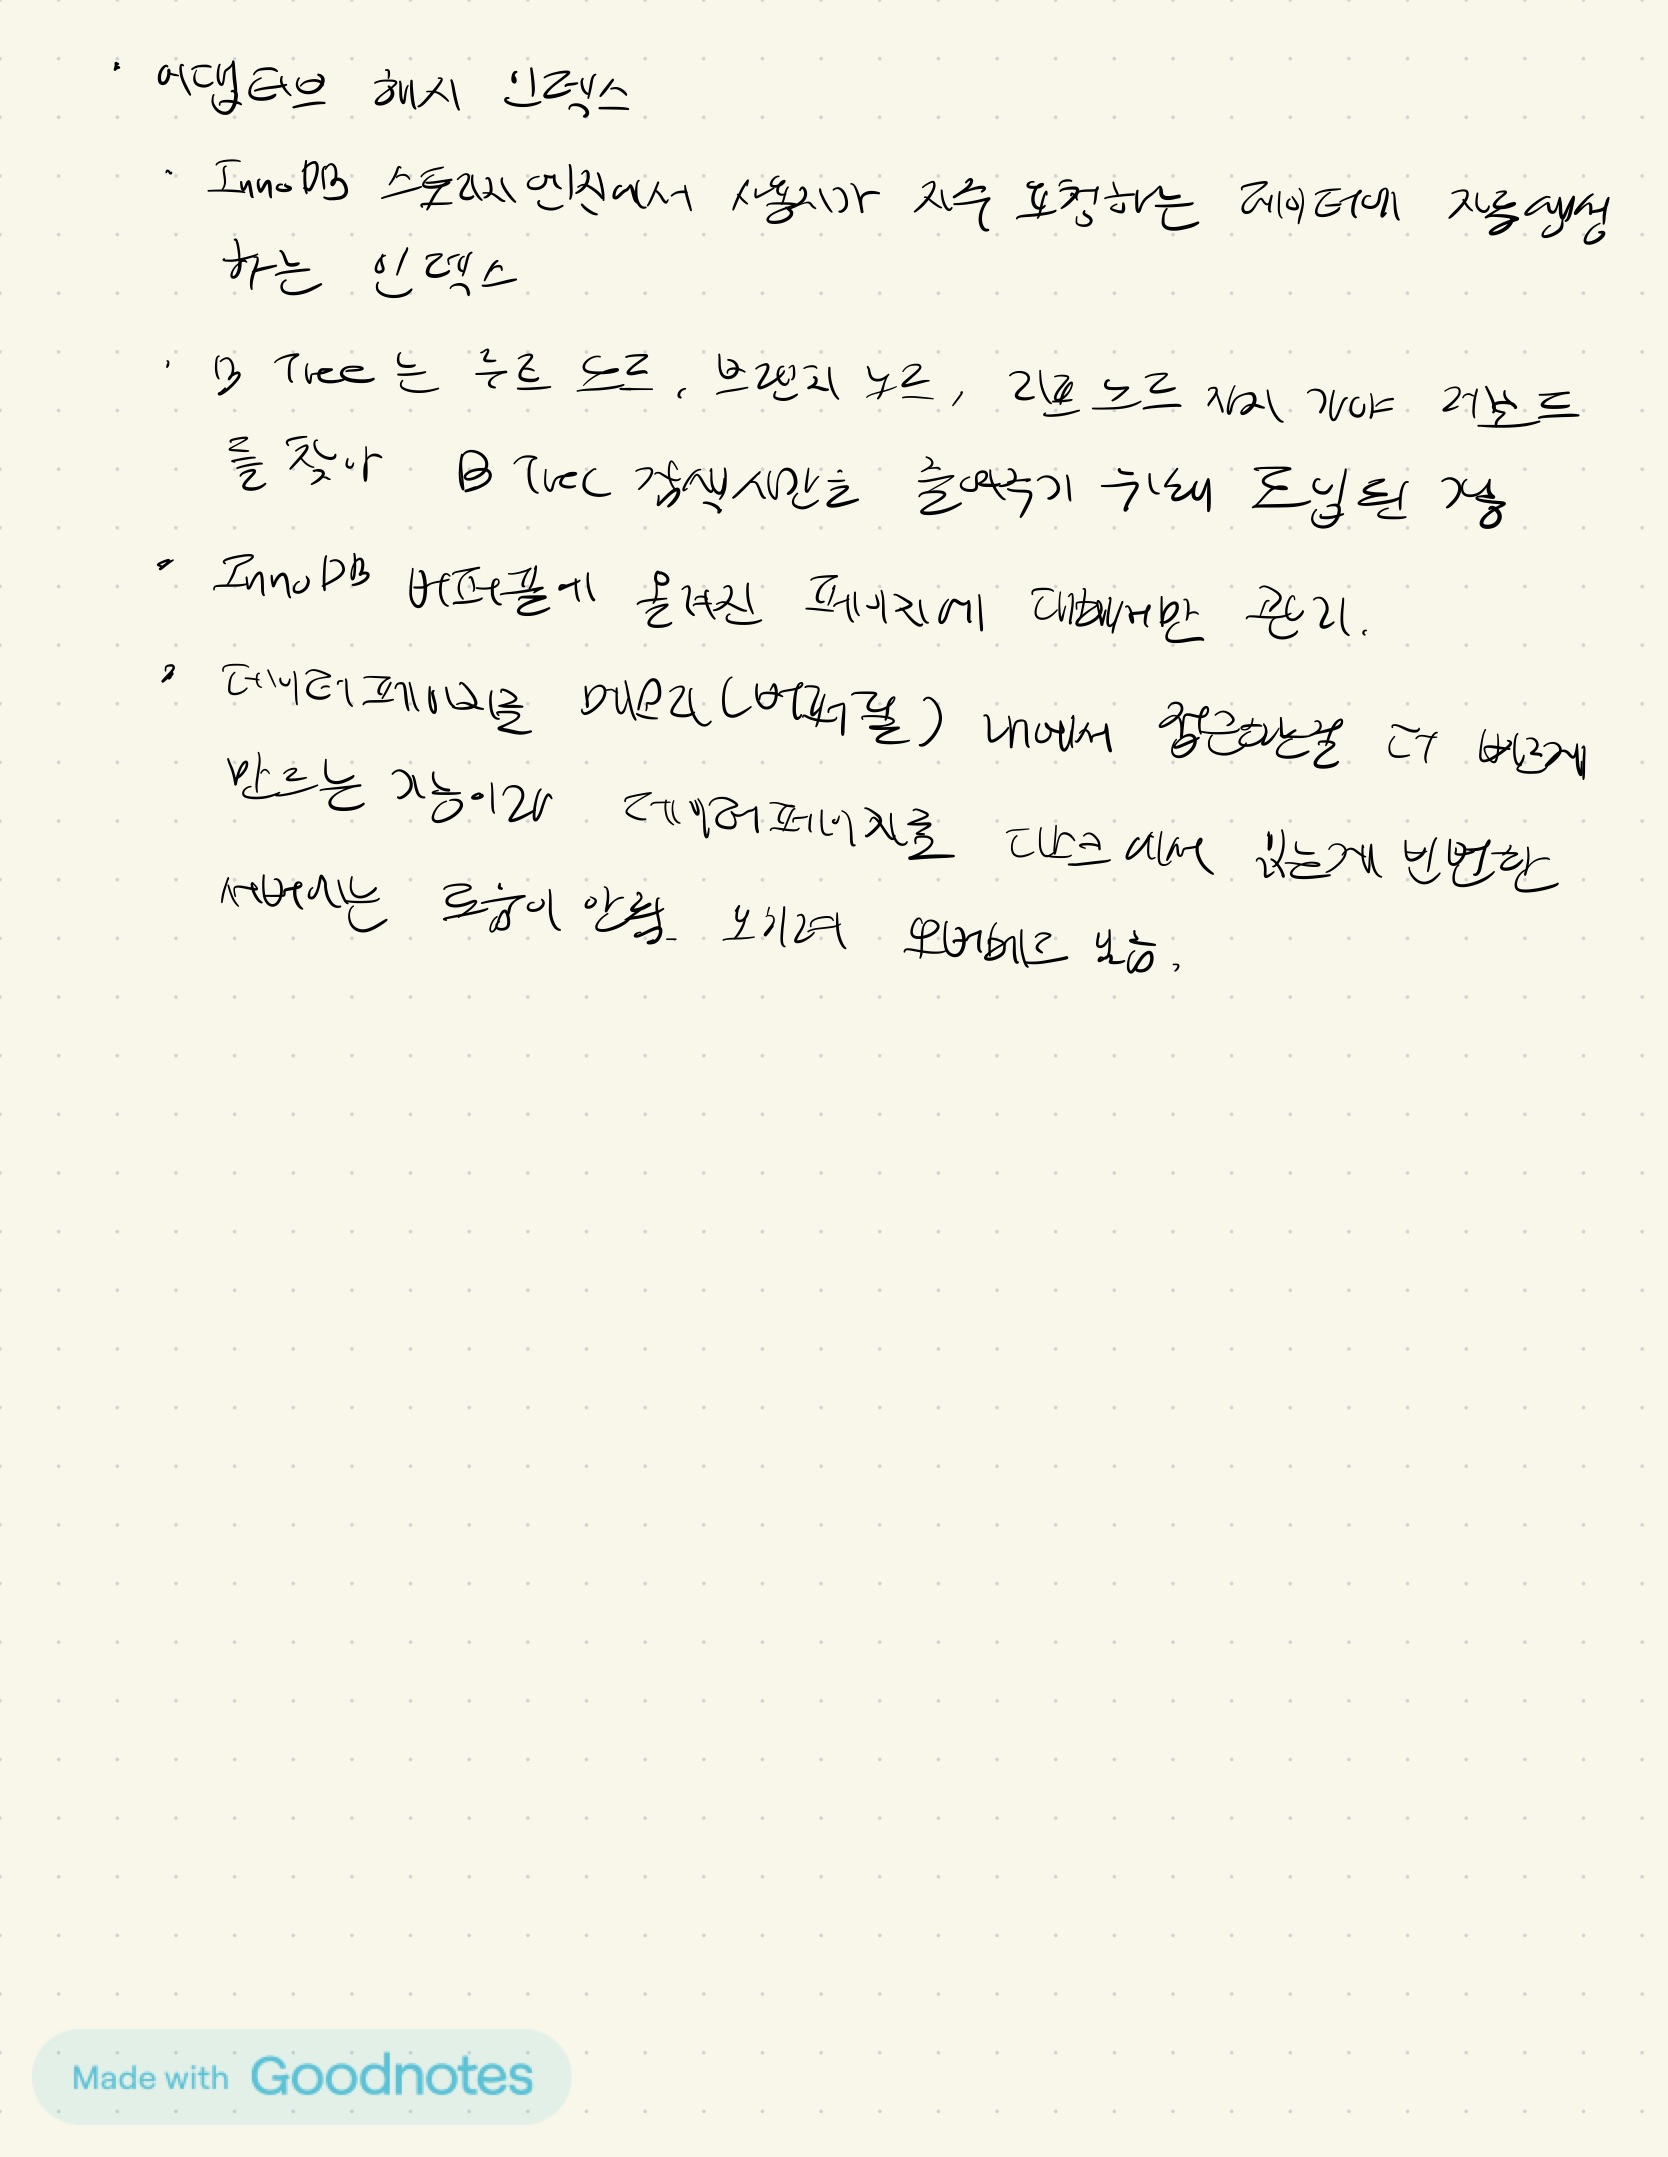 · 어댑티브 해시 인덱스
· InnoDB 스토리지 엔진에서 사용자가 자주 요청하는 데이터에 자동생성
하는 인덱스
· B Tree는 루트 노드, 브랜치 노드, 리프 노드 까지 가야 레코드
를 찾아 B Tree 검색시간을 줄여주기 위해 도입된 기능
· InnoDB 버퍼풀에 올려진 페이지에 대해서만 관리.
· 데이터페이지를 메모리(버퍼풀) 내에서 접근하는걸 더 빠르게
만드는 기능이라 데이터페이지를 디스크에서 읽는게 빈번한
서버에는 도움이 안됨. 오히려 오버헤드 높음.
Made with Goodnotes